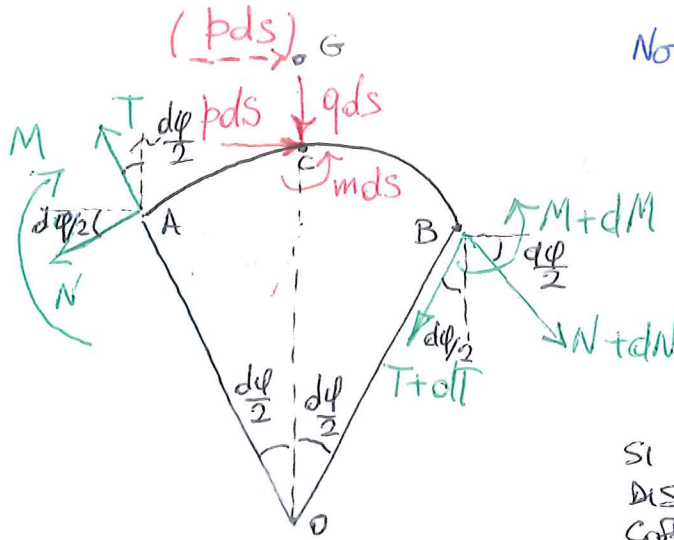 (pds)
G
No
T
dφ/2
pds
qds
M
C
mds
dφ/2
A
B
M+dM
dφ/2
N
dφ/2
N+dN
T+dT
dφ/2
dφ/2
SI
DIS
O